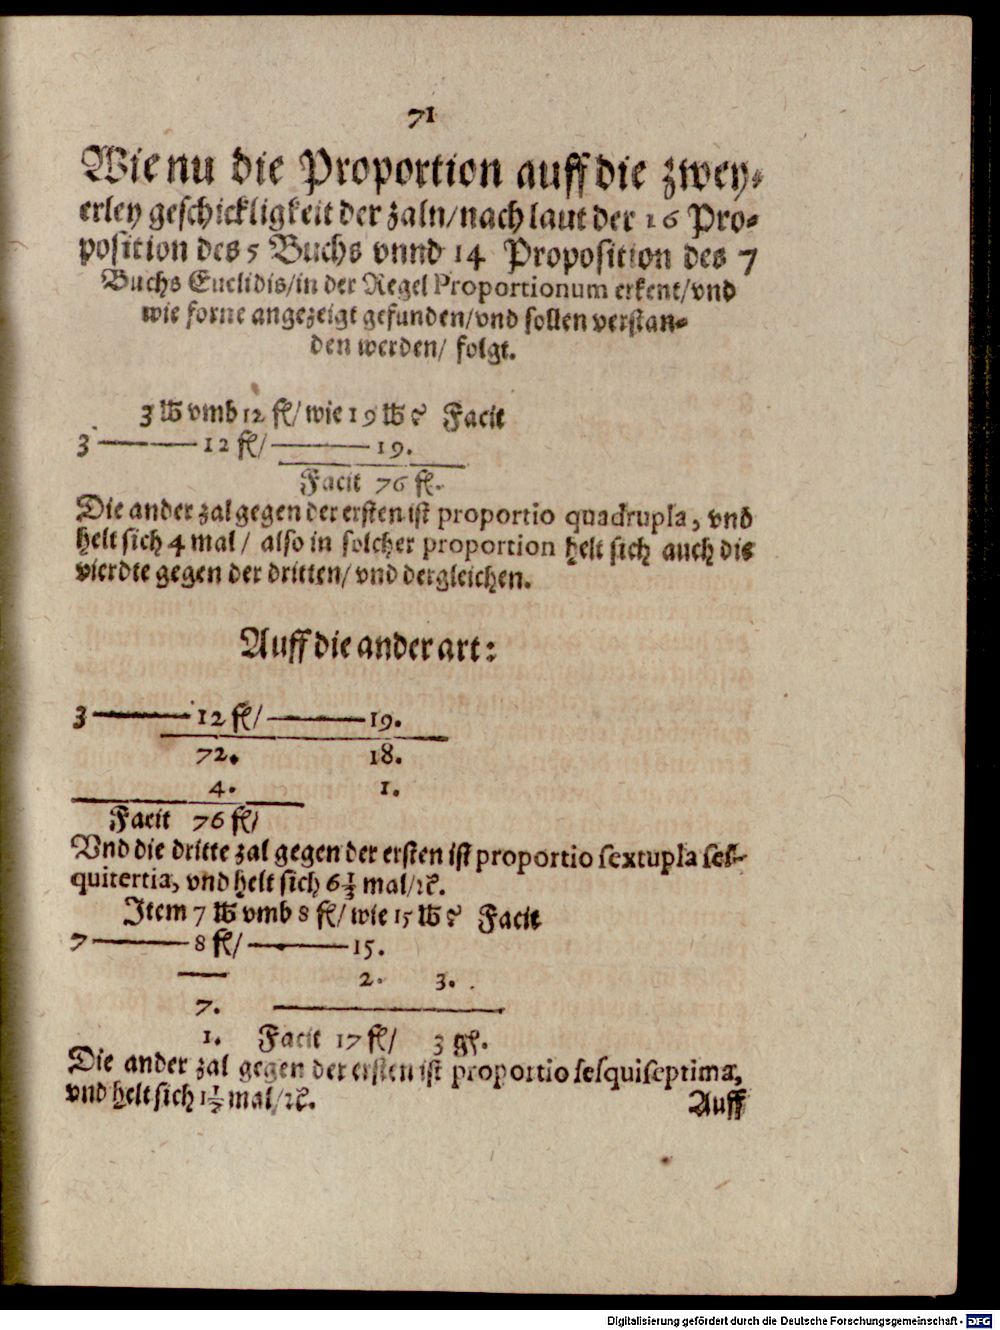 71
Wie nu die Proportion auff die zwey⸗
erley geschickligkeit der zaln/nach laut der 16 Pro⸗
position des 5 Buchs vnnd 14 Proposition des 7
Buchs Euclidis/in der Regel Proportionum erkent/vnd
wie forne angezeigt gefunden/vnd sollen verstan⸗
den werden/ folgt.
3 ℔ vmb 12 fl/ wie 19 ℔? Facit
3 ——— 12 fl/ ——— 19.
Facit 76 fl.
Die ander zal gegen der ersten ist proportio quadrupla, vnd
helt sich 4 mal/ also in solcher proportion helt sich auch die
vierdte gegen der dritten/ vnd dergleichen.
Auff die ander art:
3 ——— 12 fl/ ——— 19.
72. 18.
4. 1.
Facit 76 fl/
Vnd die dritte zal gegen der ersten ist proportio sextupla ses-
quitertia, vnd helt sich 6 1/3 mal/ꝛc.
Item 7 ℔ vmb 8 fl/ wie 15 ℔? Facit
7 ——— 8 fl/ ——— 15.
2. 3.
7.
1. Facit 17 fl/ 3 gl.
Die ander zal gegen der ersten ist proportio sesquiseptima,
vnd helt sich 1 1/7 mal/ꝛc.
Auff
Digitalisierung gefördert durch die Deutsche Forschungsgemeinschaft - DFG